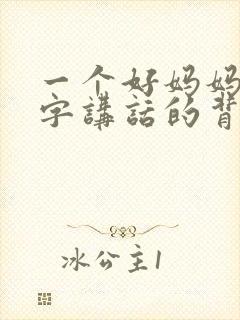 一个好妈妈
字講話的背
冰公主1